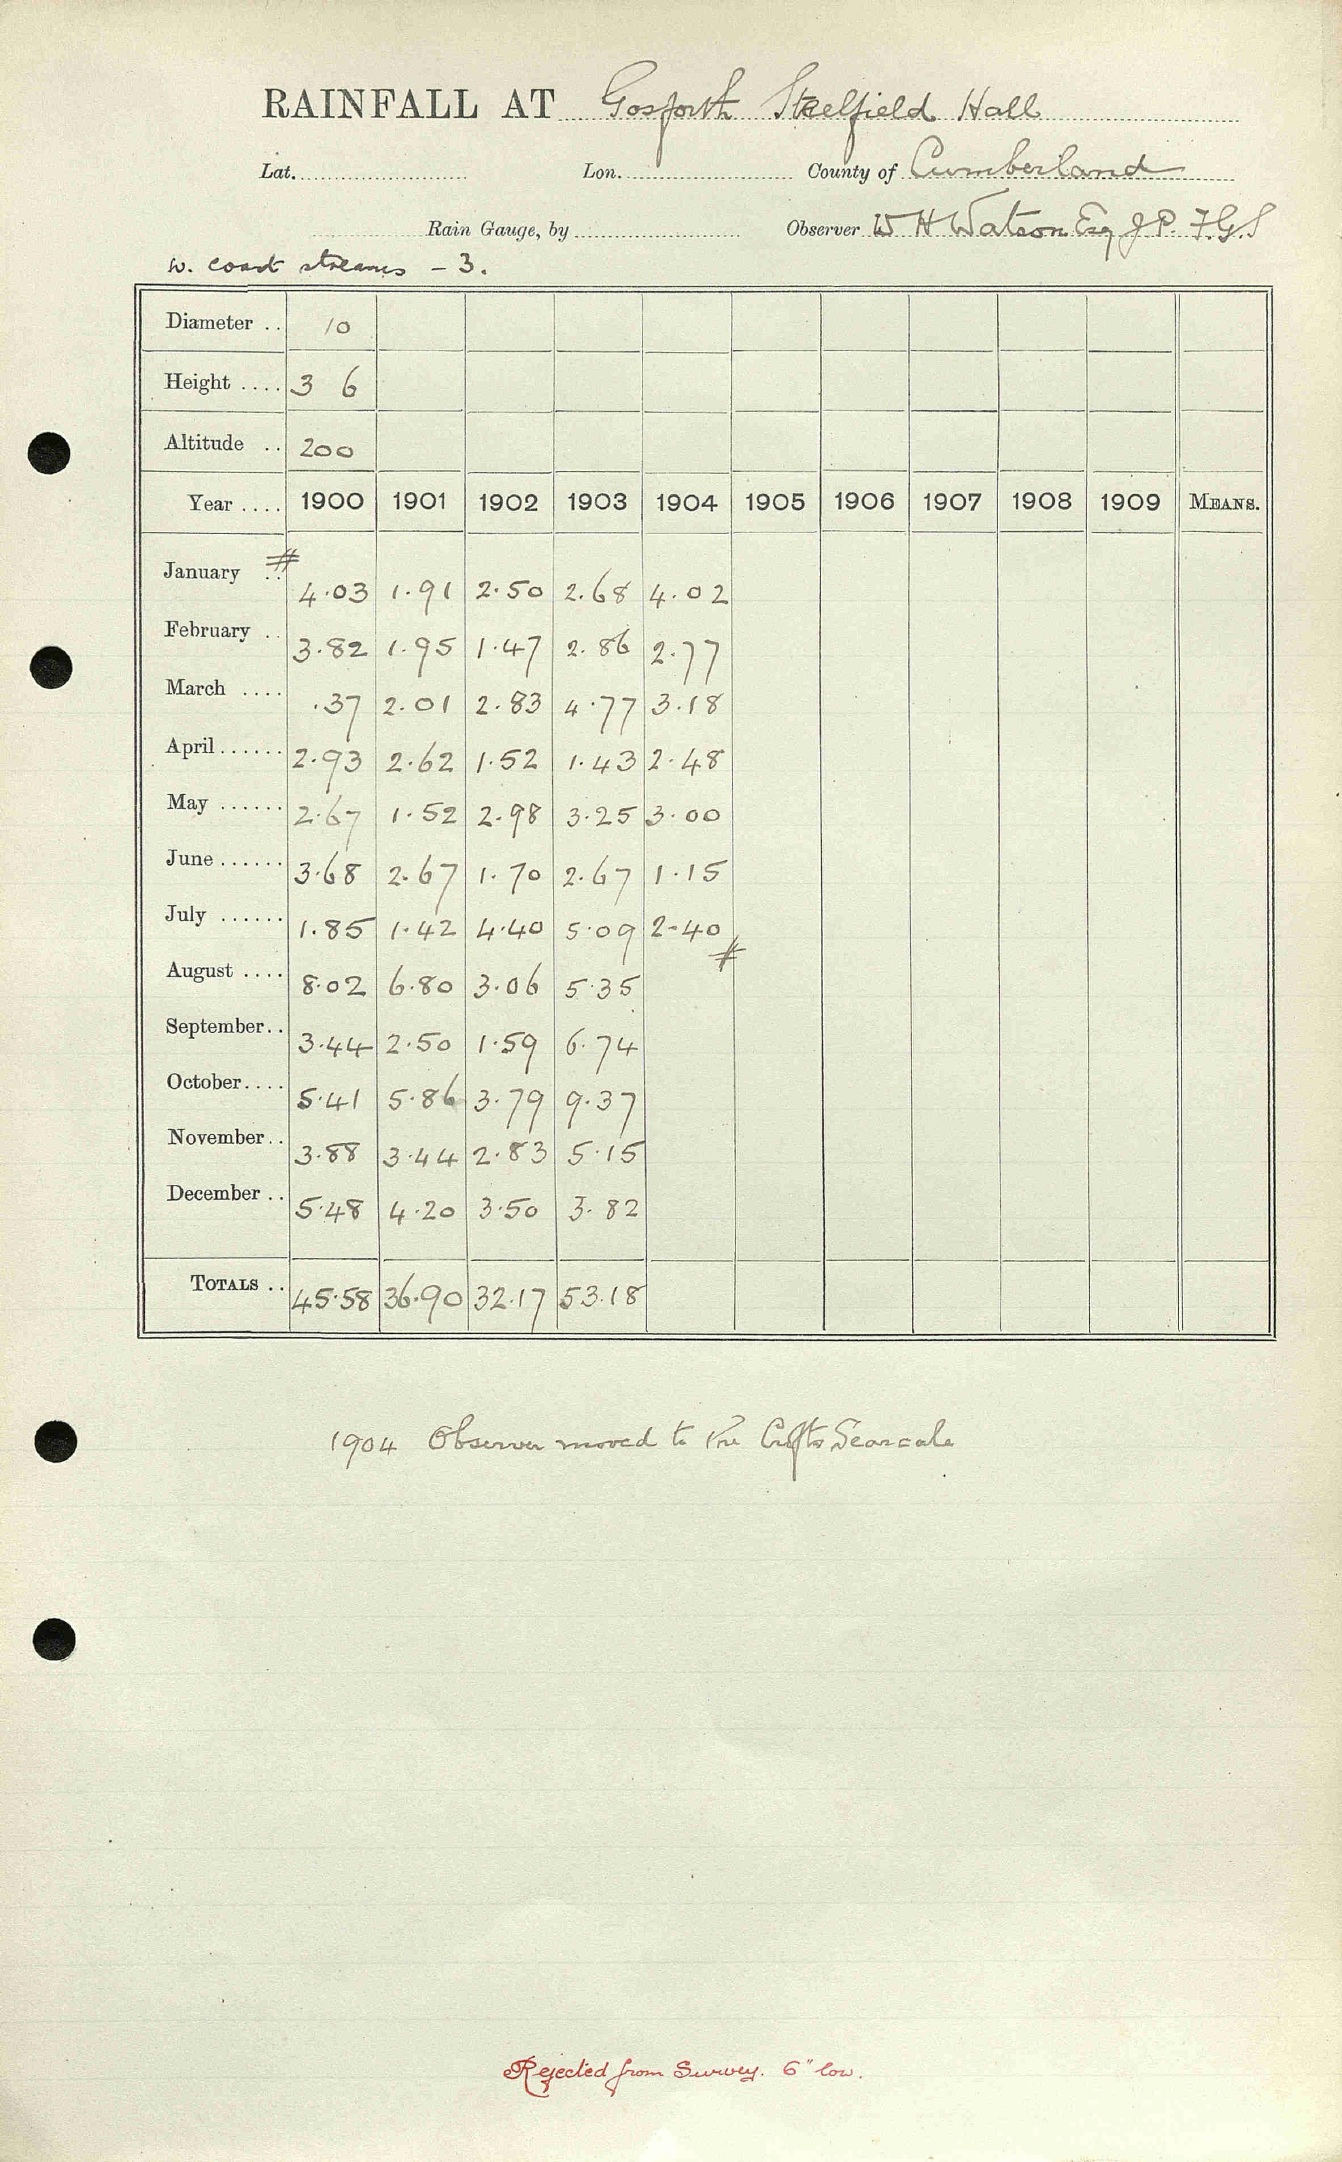 RAINFALL AT Gosforth Steelfield Hall
Lat. Lon. County of Cumberland
Rain Gauge, by Observer W H Watson Esq J P. F.G.S
W. coast streams - 3.
Diameter .. 10
Height .... 3 6
Altitude .. 200
Year .... 1900 1901 1902 1903 1904 1905 1906 1907 1908 1909 MEANS.
January .. # 4.03 1.91 2.50 2.68 4.02
February .. 3.82 1.95 1.47 2.86 2.77
March .... .37 2.01 2.83 4.77 3.18
April ...... 2.93 2.62 1.52 1.43 2.48
May ...... 2.67 1.52 2.98 3.25 3.00
June ...... 3.68 2.67 1.70 2.67 1.15
July ...... 1.85 1.42 4.40 5.09 2.40 #
August .... 8.02 6.80 3.06 5.35
September .. 3.44 2.50 1.59 6.74
October .... 5.41 5.86 3.79 9.37
November .. 3.88 3.44 2.83 5.15
December .. 5.48 4.20 3.50 3.82
TOTALS .. 45.58 36.90 32.17 53.18
1904 Observer moved to The Seascale
Rejected from Survey. 6" low.